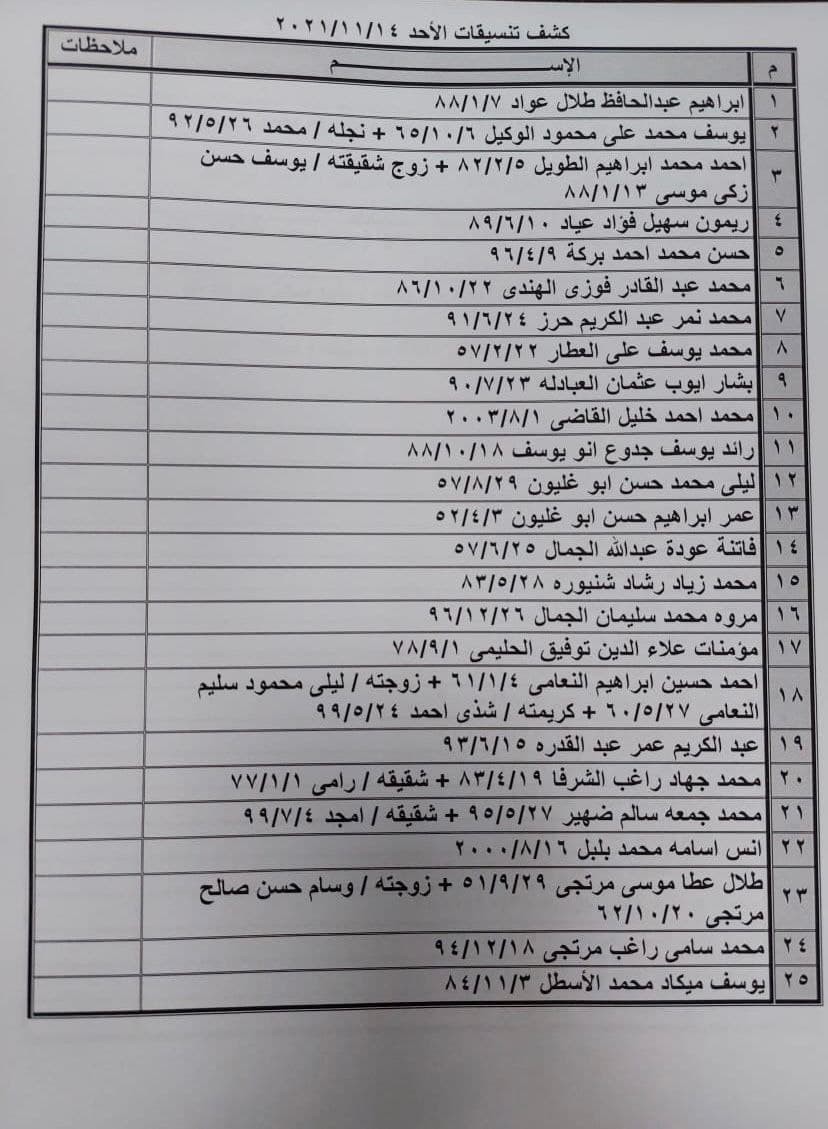 كشف تنسيقات الأحد ٢٠٢١/١١/١٤
م الإســـــــــم ملاحظات
١ ابراهيم عبدالحافظ طلال عواد ٨٨/١/٧
٢ يوسف محمد على محمود الوكيل ٦٥/١٠/٦ + نجله / محمد ٩٢/٥/٢٦
٣ احمد محمد ابراهيم الطويل ٨٢/٢/٥ + زوج شقيقته / يوسف حسن
زكى موسى ٨٨/١/١٣
٤ ريمون سهيل فؤاد عياد ٨٩/٦/١٠
٥ حسن محمد احمد بركة ٩٦/٤/٩
٦ محمد عبد القادر فوزى الهندى ٨٦/١٠/٢٢
٧ محمد نمر عبد الكريم حرز ٩١/٦/٢٤
٨ محمد يوسف على العطار ٥٧/٢/٢٢
٩ بشار ايوب عثمان العبادله ٩٠/٧/٢٣
١٠ محمد احمد خليل القاضى ٢٠٠٣/٨/١
١١ رائد يوسف جدوع انو يوسف ٨٨/١٠/١٨
١٢ ليلى محمد حسن ابو غليون ٥٧/٨/٢٩
١٣ عمر ابراهيم حسن ابو غليون ٥٢/٤/٣
١٤ فاتنة عودة عبدالله الجمال ٥٧/٦/٢٥
١٥ محمد زياد رشاد شنيوره ٨٣/٥/٢٨
١٦ مروه محمد سليمان الجمال ٩٦/١٢/٢٦
١٧ مؤمنات علاء الدين توفيق الحليمى ٧٨/٩/١
١٨ احمد حسين ابراهيم النعامى ٦١/١/٤ + زوجته / ليلى محمود سليم
النعامى ٦٠/٥/٢٧ + كريمته / شذى احمد ٩٩/٥/٢٤
١٩ عبد الكريم عمر عبد القدره ٩٣/٦/١٥
٢٠ محمد جهاد راغب الشرفا ٨٣/٤/١٩ + شقيقه / رامى ٧٧/١/١
٢١ محمد جمعه سالم ضهير ٩٥/٥/٢٧ + شقيقه / امجد ٩٩/٧/٤
٢٢ انس اسامه محمد بلبل ٢٠٠٠/٨/١٦
٢٣ طلال عطا موسى مرتجى ٥١/٩/٢٩ + زوجته / وسام حسن صالح
مرتجى ٦٢/١٠/٢٠
٢٤ محمد سامى راغب مرتجى ٩٤/١٢/١٨
٢٥ يوسف ميكاد محمد الأسطل ٨٤/١١/٣